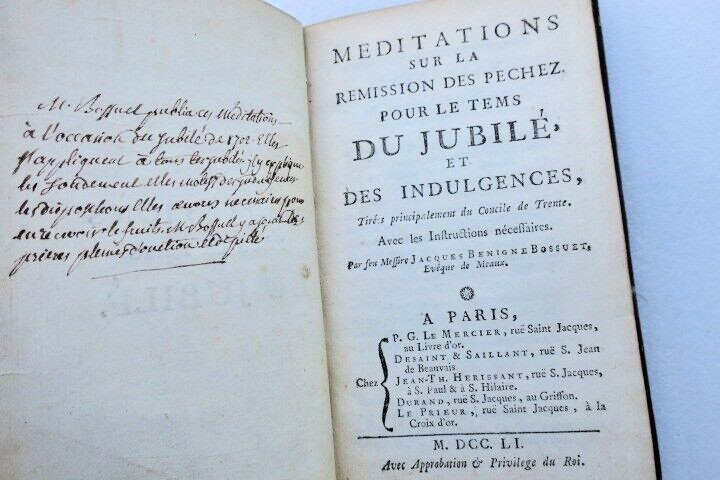 Mr Bossuet publia ces Méditations
à l'occasion du Jubilé de 1702. Elles
s'appliquent à tous les jubilés. Il y explique
les fondement et les motifs des indulgences
les dispositions et les œuvres necessaires pour
en recevoir le fruit. Mr Bossuet y a joint des
prieres pleines d'onction et de piété
MEDITATIONS
SUR LA
REMISSION DES PECHEZ,
POUR LE TEMS
DU JUBILÉ,
ET
DES INDULGENCES,
Tirées principalement du Concile de Trente.
Avec les Instructions nécessaires.
Par feu Messire JACQUES BENIGNE BOSSUET,
Evêque de Meaux.
A PARIS,
Chez
P. G. LE MERCIER, ruë Saint Jacques,
au Livre d'or.
DESAINT & SAILLANT, ruë S. Jean
de Beauvais.
JEAN-TH. HERISSANT, ruë S. Jacques,
à S. Paul & à S. Hilaire.
DURAND, ruë S. Jacques, au Griffon.
LE PRIEUR, ruë Saint Jacques, à la
Croix d'or.
M. DCC. LI.
Avec Approbation & Privilege du Roi.